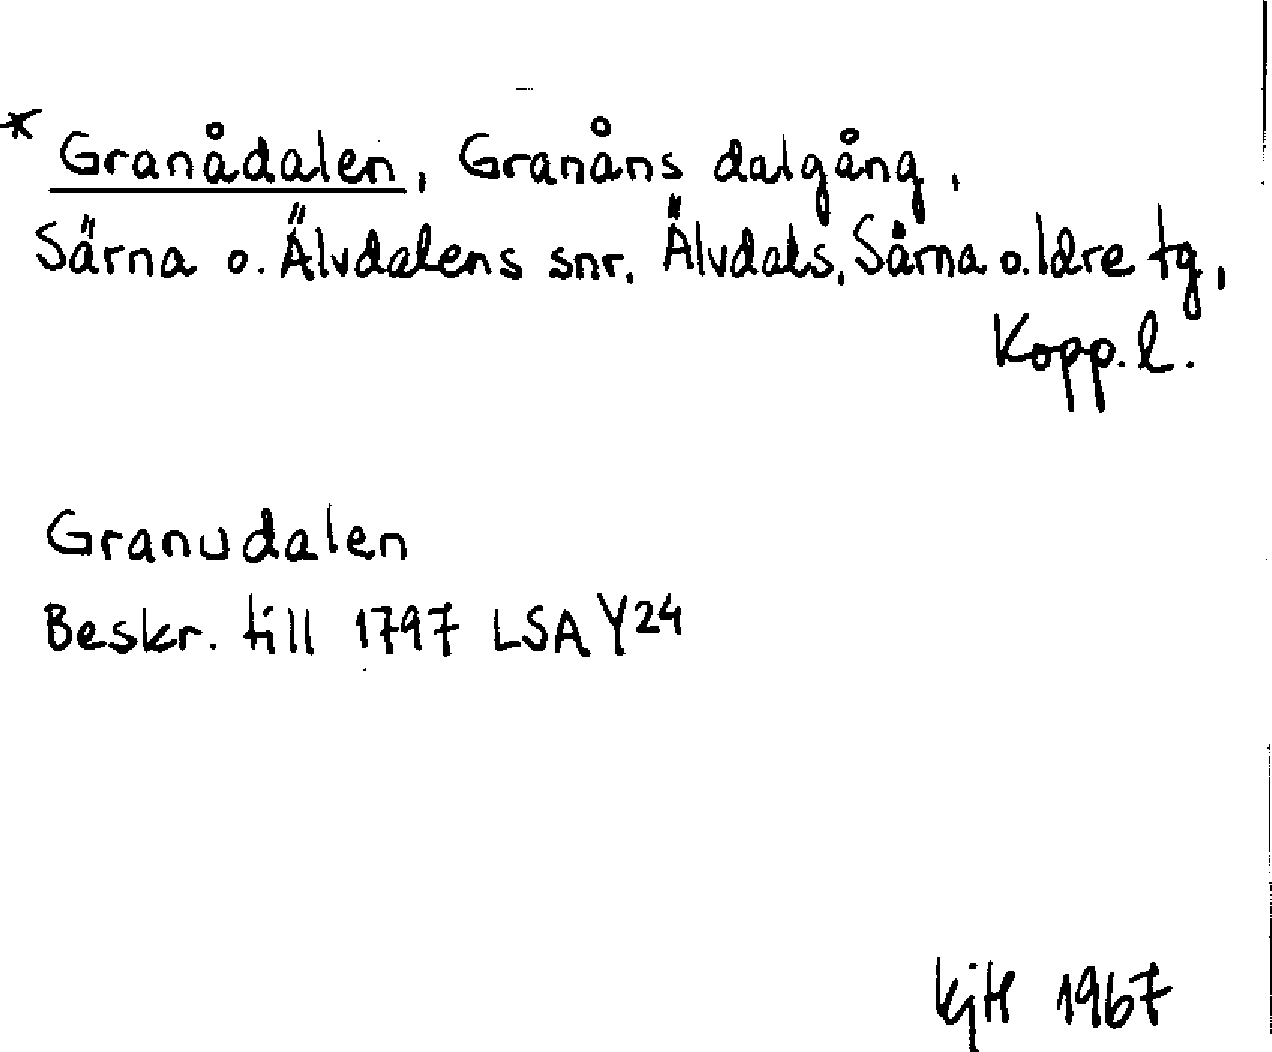 * Granådalen, Granåns dalgång,
Särna o. Älvdalens snr, Älvdals, Särna o. Idre tg,
Kopp. l.
Granudalen
Beskr. till 1797 LSA Y24
KjH 1967